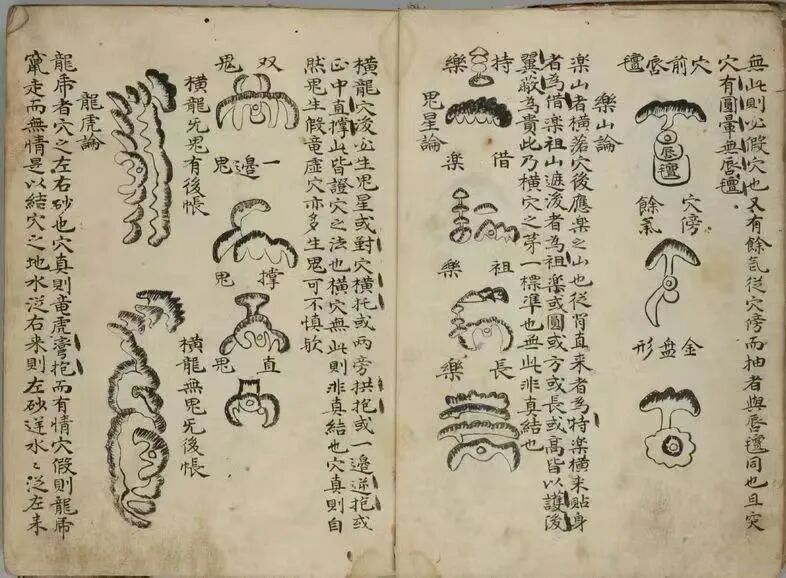 無此則必假穴也又有餘氣從穴傍而抽者與唇氊同也且突
穴有圓暈無唇氊
穴前唇氊
穴傍
餘氣
金盤形
樂山論
樂山者橫落穴後應樂之山也從背直來者為特樂橫来貼身
者為借樂祖山遮後者為祖樂或圓或方或長或高皆以護後
翼蔽為貴此乃橫穴之第一標準也無此非真結也
持樂
借樂
祖樂
長樂
鬼星論
橫龍穴後必生鬼星或對穴橫托或兩旁拱抱或一邊逆抱或
正中直撑此皆證穴之法也橫穴無此則非真結也穴真則自
然鬼生假竜虛穴亦多生鬼可不慎欤
双鬼
一邊鬼
撑鬼
直鬼
橫龍旡鬼有後帳
橫龍無鬼旡後帳
龍虎論
龍虎者穴之左右砂也穴真則竜虎弯抱而有情穴假則龍虎
竄走而無情是以結穴之地水從右来則左砂逆水〻從左来